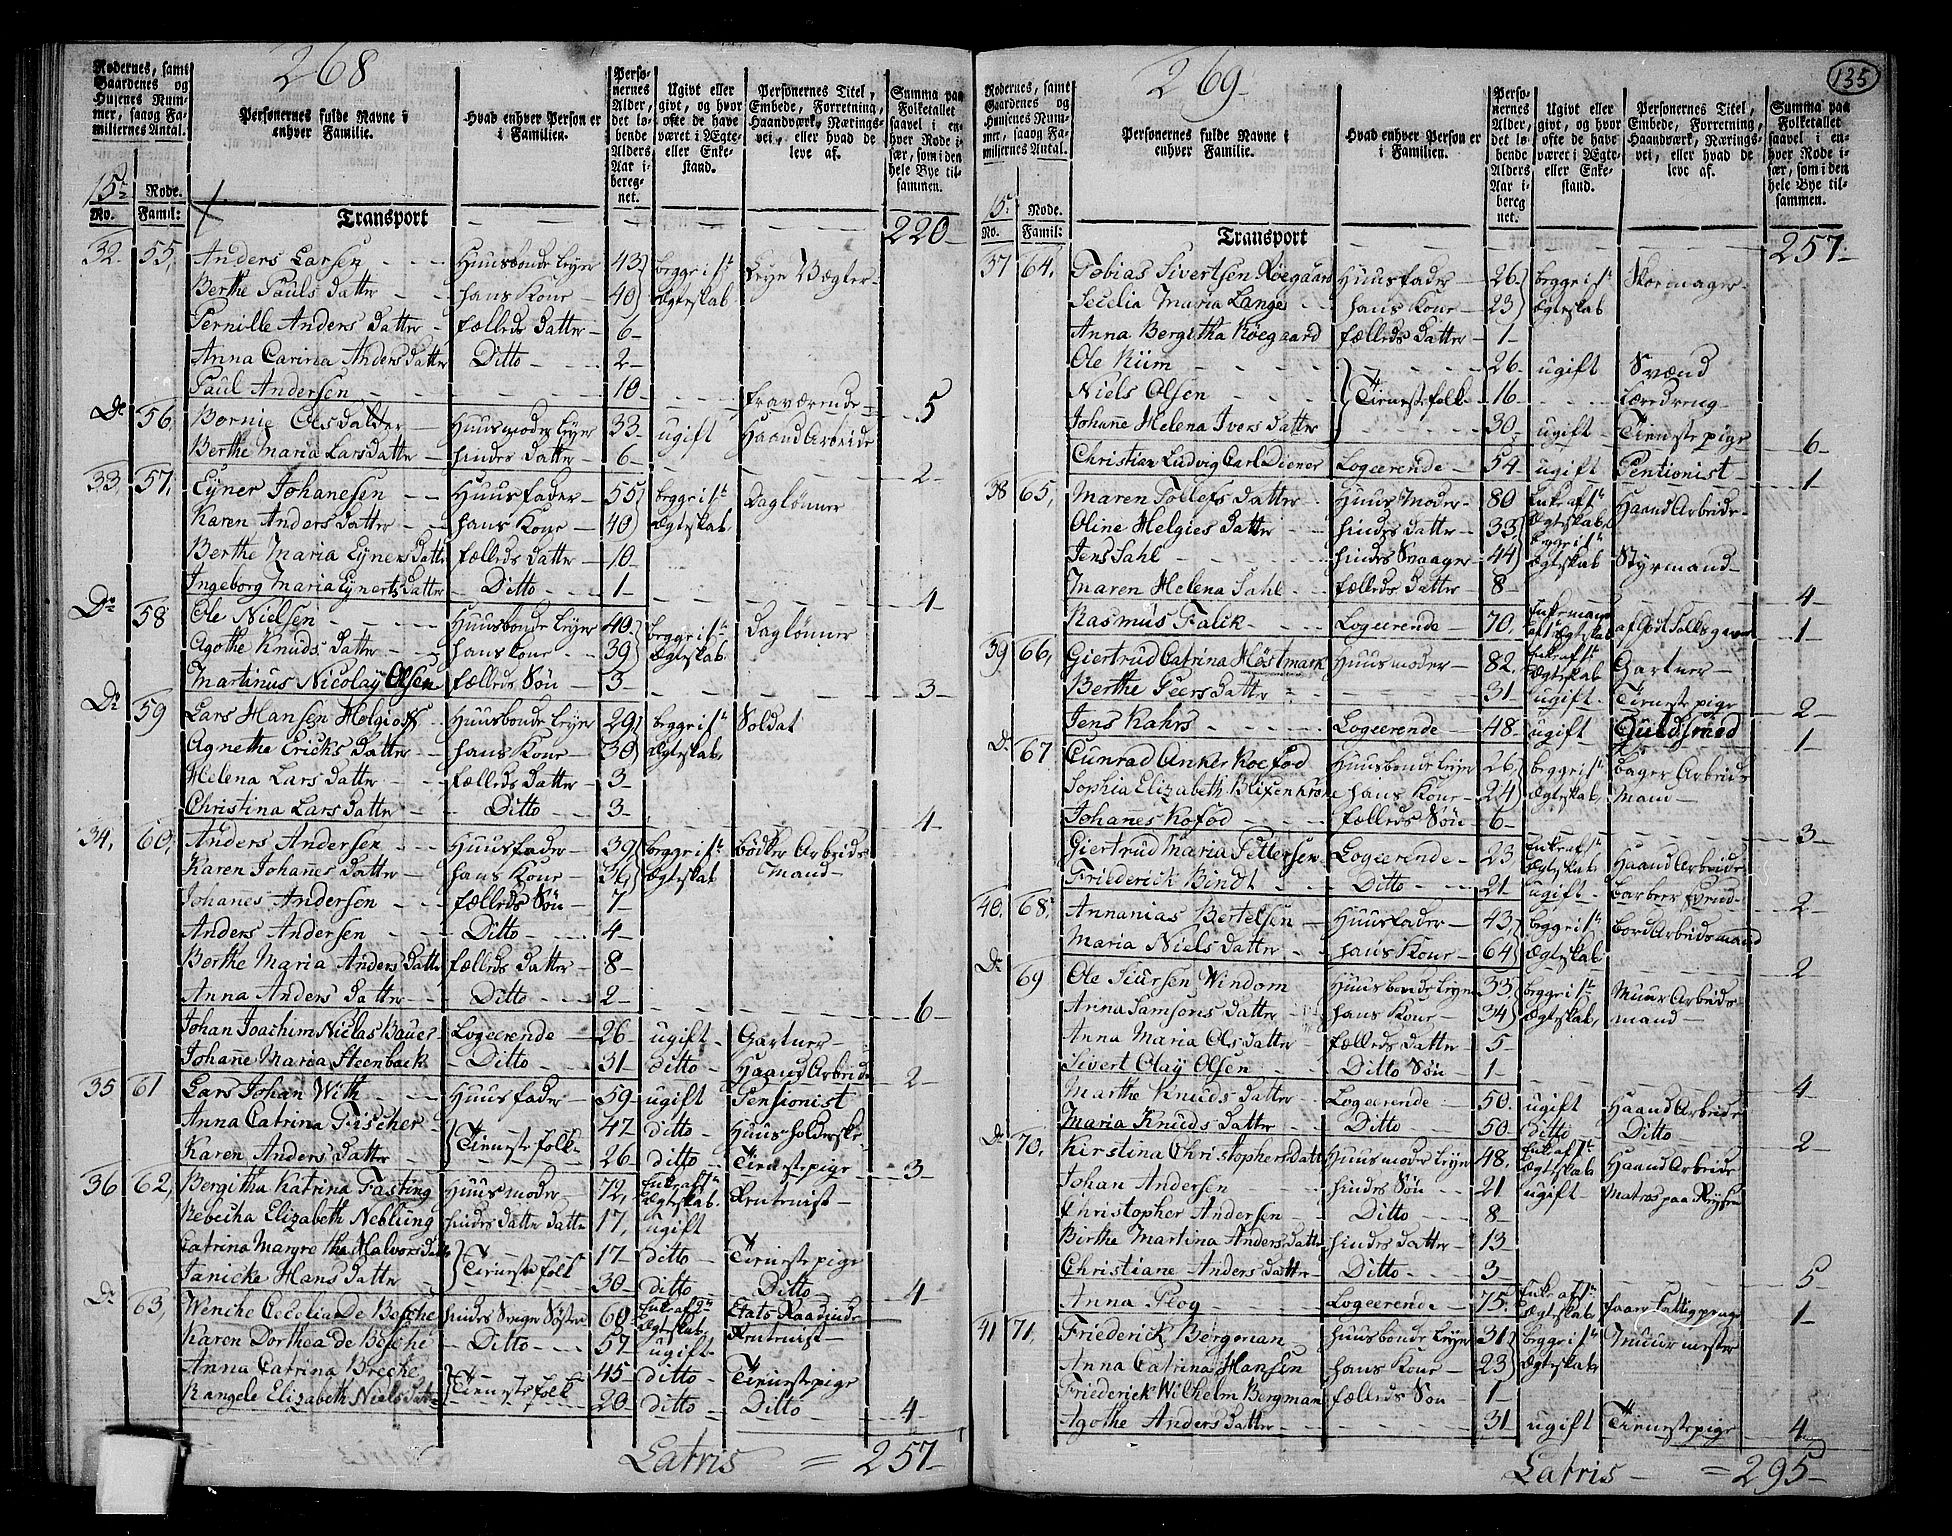 268
Rodernes, samt Gaardenes og Husenes Nummer, saaog Familiernes Antal.
Personernes fulde Navne i enhver Familie.
Hvad enhver Person er i Familien.
Personernes Alder, det løbende Alders Aar iberegnet.
Ugivt eller givt, og hvor ofte de have været i Ægte- eller Enkestand.
Personernes Titel, Embede, Forretning, Haandværk, Næringsvei, eller hvad de leve af.
Summa paa Folketallet saavel i enhver Rode især, som i den hele Bye tilsammen.
15de Rode.
No. Famil:
Transport 220
32. 55. Anders Larsen Huusbonde Leyer 43 begge i 1te Leye Vægter
Berthe Pauls datter hans Kone 40 Ægteskab
Pernille Anders datter fælleds datter 6
Anna Carina Anders datter Ditto 2
Paul Andersen 10 fraværende 5
Do 56 Bernie Olsdatter Huusmoder Leyer 33 ugift Haand Arbeide
Berthe Maria Larsdatter hindes datter 6 2
33. 57. Eyner Johanesen Huusfader 55 begge i 1te Daglønner
Karen Anders datter hans Kone 40 Ægteskab
Berthe Maria Eyners datter fælleds datter 10
Ingeborg Maria Eynerts datter Ditto 1 4
Do 58 Ole Nielsen Huusbonde Leyer 40 begge i 1te Daglønner
Agothe Knuds datter hans Kone 39 Ægteskab
Martinus Nicolaÿ Olsen fælleds Søn 3 3
Do 59 Lars Hansen Huusbonde Leyer 29 begge i 1te Soldat
Agnethe Ericks datter hans Kone 30 Ægteskab
Helena Lars datter fælleds datter 3
Christina Lars datter Ditto 3 4
34. 60. Anders Andersen Huusfader 39 begge i 1te bødker Arbeids
Karen Johannes datter hans Kone Ægteskab Mand
Johanes Andersen fælleds Søn 7
Anders Andersen Ditto 4
Berthe Maria Anders datter fælleds datter 8
Anna Anders datter Ditto 2 6
Johan Joachim Niclas Bauer Logeerende 26 ugift Gartner
Johanne Maria Steenback Ditto 31 ditto Haand Arbeide 2
35 61 Lars Johan With Huusfader 59 ugift Pensionist
Anna Catrina Fischer Tienestefolk 47 ditto Huusholderske
Karen Anders datter 26 ditto Tienestepige 3
36 62 Bergitha Katrina Fasting Huusmoder 72 Enke af 1te Ægteskab Rentenist
Rebecha Elizabeth Neblung hindes datter datter 17 ugift
Catrina Margretha Halvorsdatter Tienestefolk 17 ditto Tienestepige
Janicke Hans datter 30 ditto Ditto 4
Do 63 Wenche Cecelia De Besche hindes Sviger Søster 60 Enke af Ægteskab Etats Raadinde
Karen Dorthea de Besche Ditto 57 ugift Rentenist
Anna Catrina Breche Tienestefolk 45 ditto Tienestepige
Rangele Elizabeth Niels datter 20 ditto Ditto 4
Latris = 257
269
135
Rodernes, samt Gaardenes og Husenes Nummer, saaog Familiernes Antal.
Personernes fulde Navne i enhver Familie.
Hvad enhver Person er i Familien.
Personernes Alder, det løbende Alders Aar iberegnet.
Ugivt eller givt, og hvor ofte de have været i Ægte- eller Enkestand.
Personernes Titel, Embede, Forretning, Haandværk, Næringsvei, eller hvad de leve af.
Summa paa Folketallet saavel i enhver Rode især, som i den hele Bye tilsammen.
15 Rode.
No. Famil:
Transport 257
37 64. Tobias Sivertsen Røegaard Huusfader 26 begge i 1te Skoemager
Secelia Maria Lange hans Kone 23 Ægteskab
Anna Bergitha Røegaard fælleds datter 1
Ole Kiim Tienestefolk 26 ugift Svænd
Niels Olsen 16 Læredreng
Johanne Helena Ivers datter 30 ugift Tienestepige 6
Christian Ludvig Carl Diener Logeerende 54 ugift Pentionist 1
38 65. Maren Tollefs datter Huus Moder 80 Enke af 1te Ægteskab Haand Arbeide
Oline Helgies datter hindes datter 33 begge i 1te
Jens Sahl hindes Svoger 44 Ægteskab Styrmand
Maren Helena Sahl fælleds datter 8 4
Rasmus Falck Logeerende 70 Enkemand af 1te Ægteskab 1
39 66. Giertrud Catrina Høstmark Huusmoder 82 Enke af 1te Ægteskab Gartner
Berthe Peers datter 31 ugift Tienestepige 2
Jens Kahrs Logeerende 48 ugift Guldsmed 1
Do 67 Cunrad Anker Koefod Huusbonde Leyer 26 begge i 1te bager Arbeids
Sophia Elizabeth Blixenkrone hans Kone 24 Ægteskab Mand
Johanes Kofod fælleds Søn 6 3
Giertrud Maria Pettersen Logeerende 23 Enke af 1te Ægteskab Haand Arbeide
Friederick Bindt Ditto 21 ugift barbeer Svend 2
40. 68. Annanias Bertelsen Huusfader 43 begge i 1te bord Arbeidsmand
Maria Niels datter hans Kone 64 Ægteskab 2
Do 69 Ole Siursen Windom Huusbonde Leyer 33 begge i 1te Muur Arbeids
Anna Samsons datter hans Kone 34 Ægteskab mand
Anna Maria Olsdatter fælleds datter 5
Sivert Olaÿ Olsen Ditto Søn 1 4
Marthe Knuds datter Logeerende 50 ugift Haand Arbeide
Maria Knuds datter Ditto 50 ditto Ditto 2
Do 70. Kirstina Christophersdatter Huusmoder Leyer 48 Enke af 1te Ægteskab Haand Arbeide
Johan Andersen hindes Søn 21 ugift Matros paa Reysen
Christopher Andersen Ditto 8
Birthe Martina Anders datter hindes datter 13
Christiane Anders datter Ditto 3 5
Anna Plog Logeerende 75 Enke af 1te Ægteskab faaer Fattigpenge 1
41 71. Friederick Bergman Huusbonde Leyer 31 begge i 1te Muurmester
Anna Catrina Hansen hans Kone 23 Ægteskab
Friederick Wilhelm Bergman fælleds Søn 1
Agothe Anders datter 31 ugift Tienestepige 4
Latris = 295